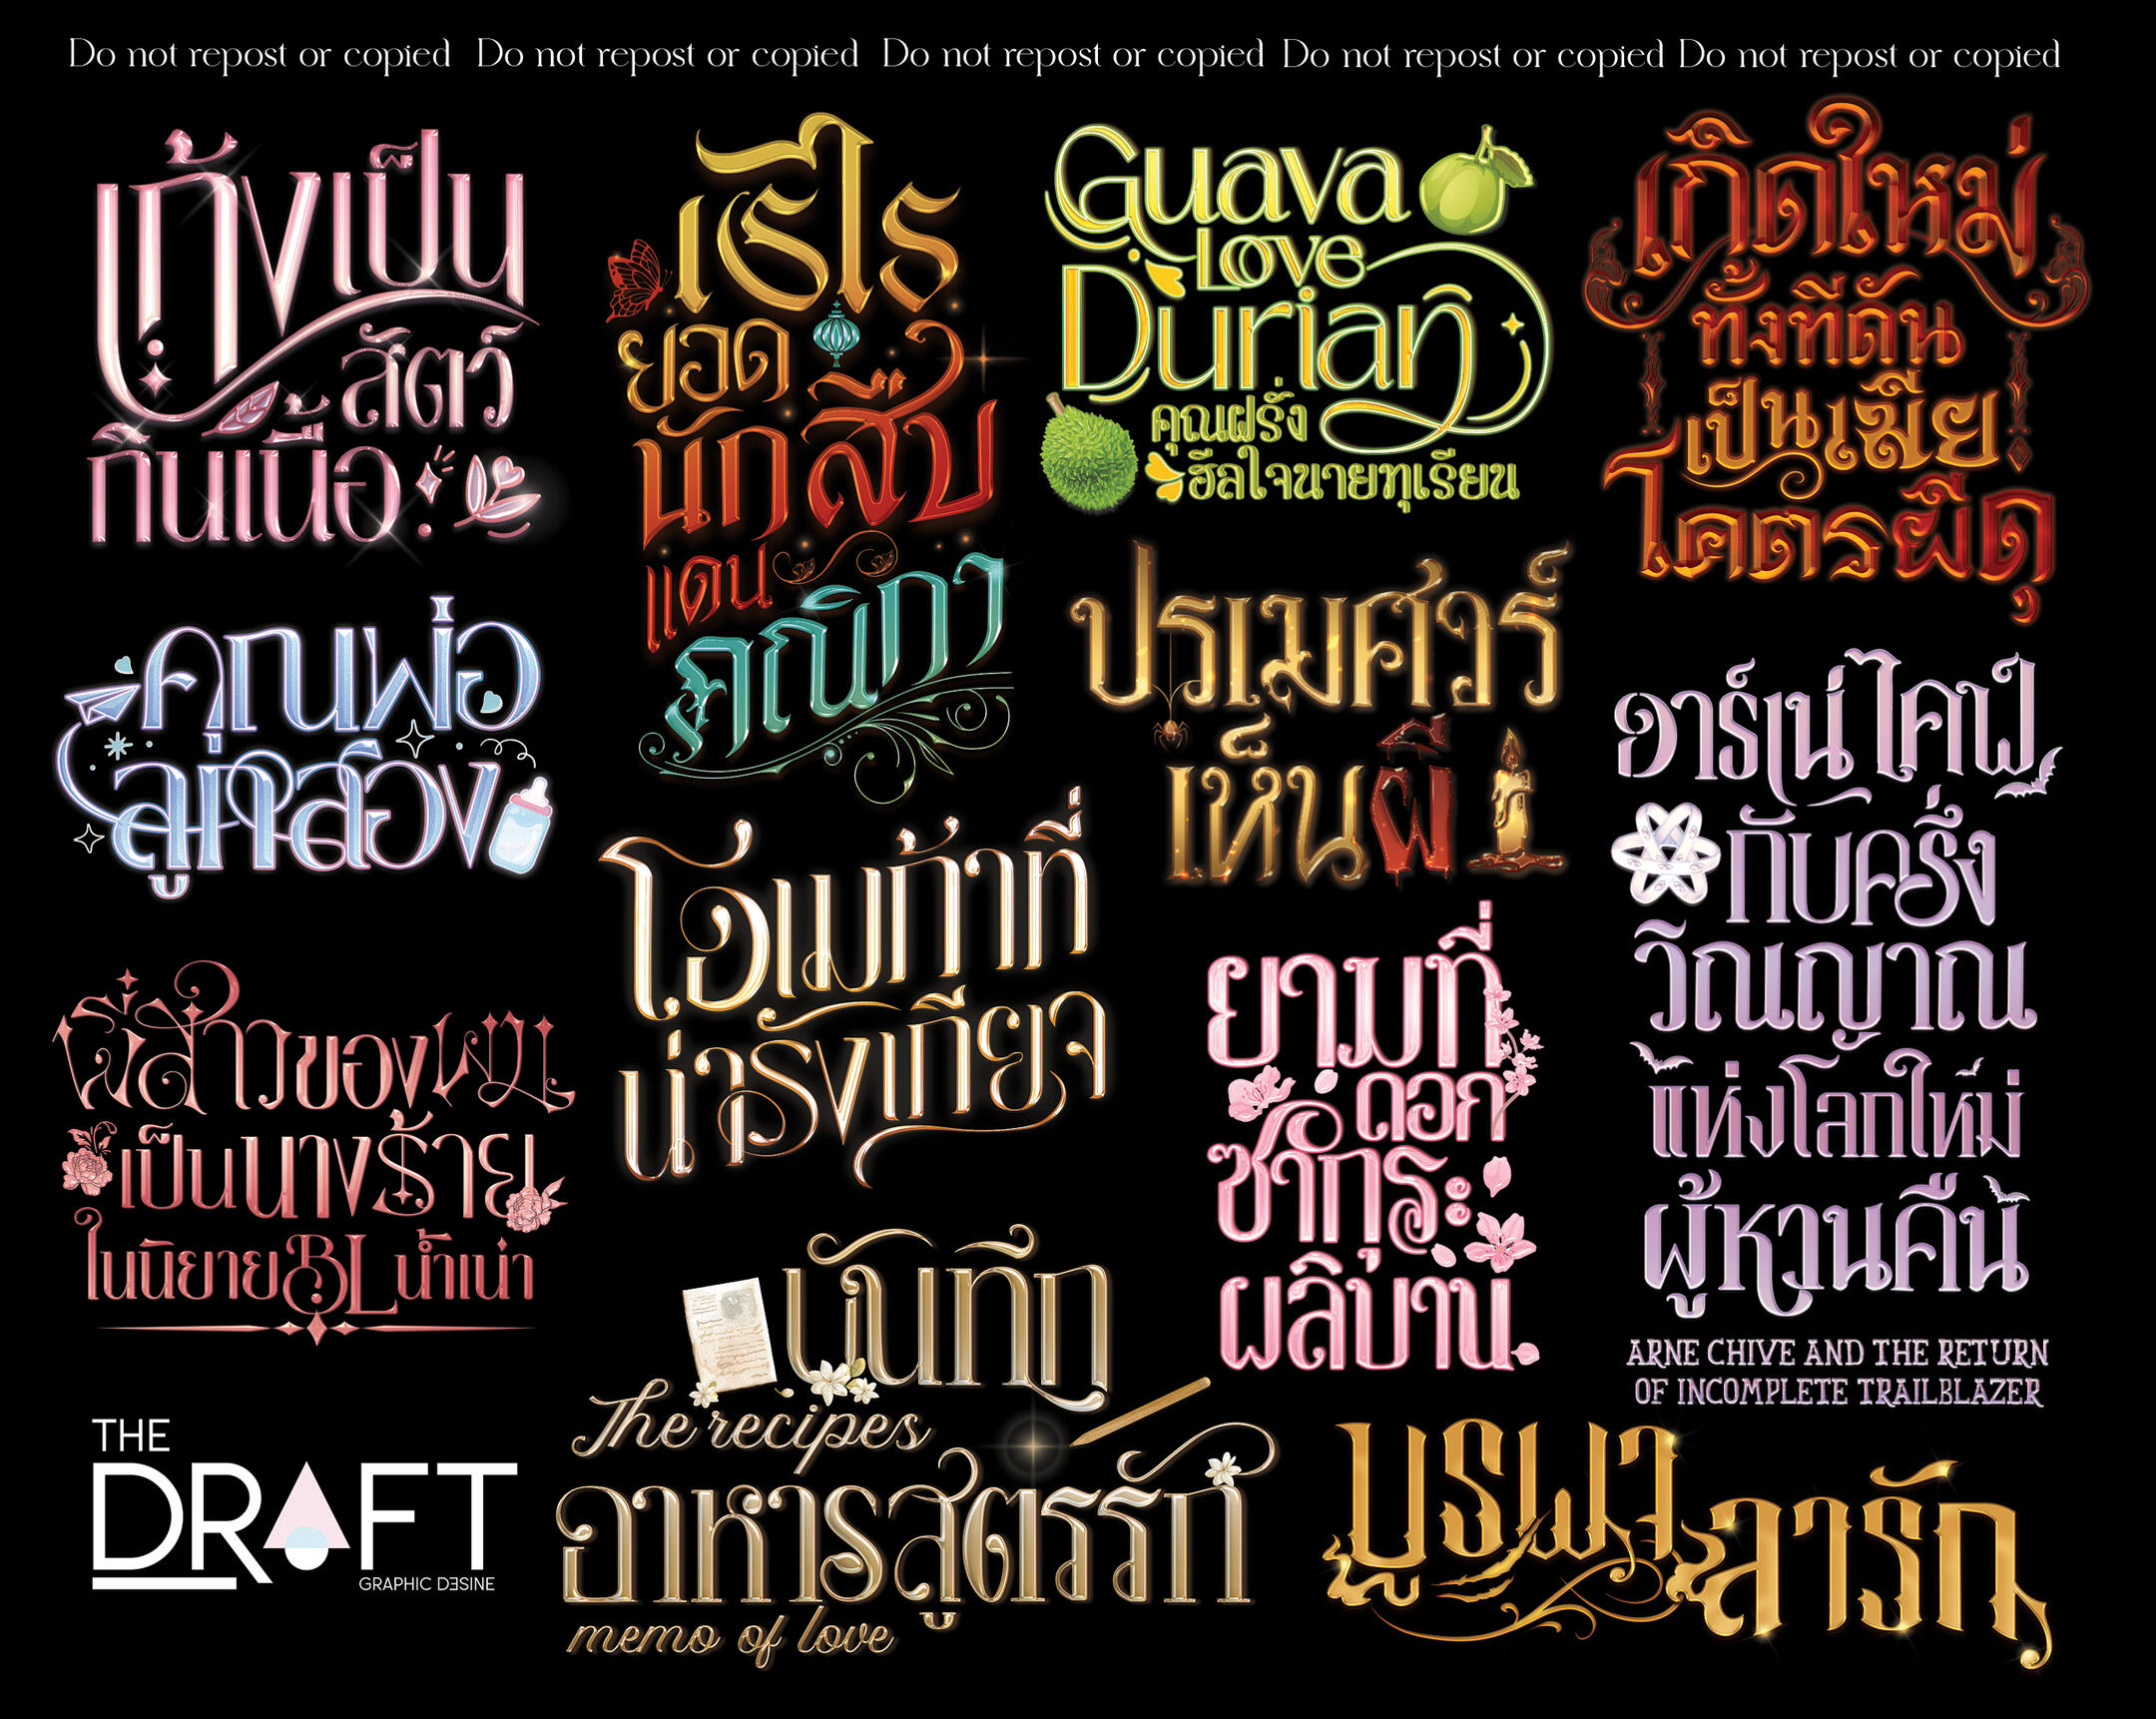 Do not repost or copied Do not repost or copied Do not repost or copied Do not repost or copied Do not repost or copied
เก้งเป็น
สัตว์
กินเนื้อ
เธไร
ยอด
นักสืบ
แดน
คณิกา
Guava
Love
Durian
คุณฝรั่ง
ฮีลใจนายทุเรียน
เกิดใหม่
ทั้งทีดัน
เป็นเมีย
โคตรผีดุ
คุณพ่อ
ลูกสอง
ปรเมศวร์
เห็นผี
อาร์เน่ไคฟ์
กับครึ่ง
วิญญาณ
แห่งโลกใหม่
ผู้หวนคืน
ARNE CHIVE AND THE RETURN
OF INCOMPLETE TRAILBLAZER
โอเมก้าที่
น่ารังเกียจ
ยามที่
ดอก
ซากุระ
ผลิบาน
พี่สาวของผม
เป็นนางร้าย
ในนิยายBLน้ำเน่า
บันทึก
The recipes
อาหารสูตรรัก
memo of love
บูรพา
ลารัก
THE
DRAFT
GRAPHIC DESINE